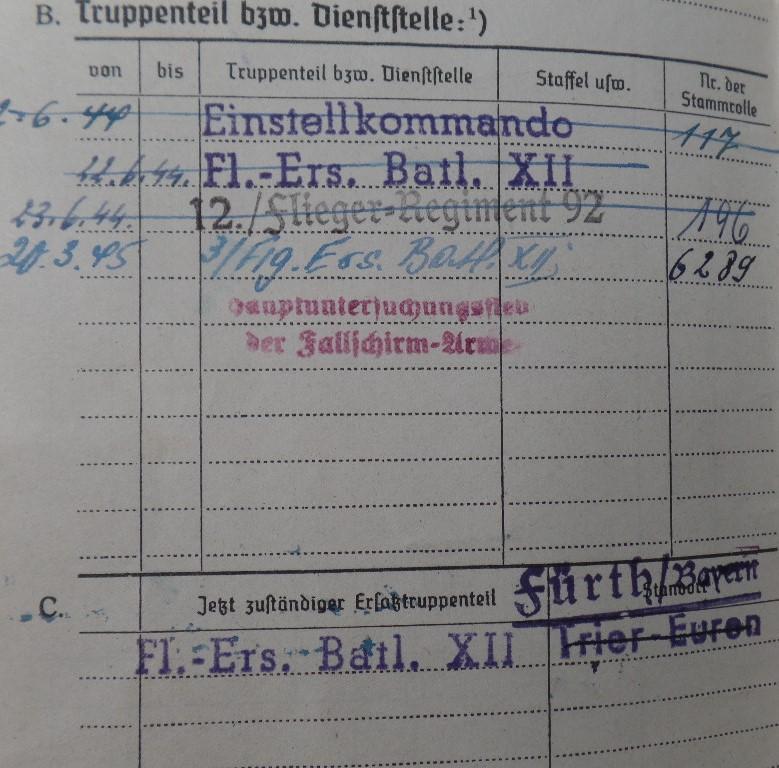 B. Truppenteil bzw. Dienststelle:¹)
von bis Truppenteil bzw. Dienststelle Staffel usw. Nr. der Stammrolle
6.44 Einstellkommando 117
22.6.44. Fl.-Ers. Batl. XII
23.6.44. 12./Flieger-Regiment 92 196
3.45 3/Flg. Ers. Batl. XII 6289
der Fallschirm-Armee
C. Jetzt zuständiger Ersatztruppenteil Standort
Fürth/Bayern
Fl.-Ers. Batl. XII Trier-Euren